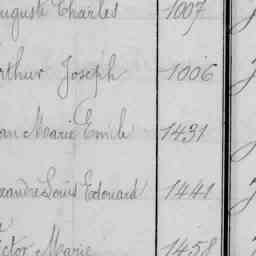 uguste Charles 1007
rthur Joseph 1006
an Marie Emile 1431
exandre Louis Edouard 1441
ictor Marie 1458